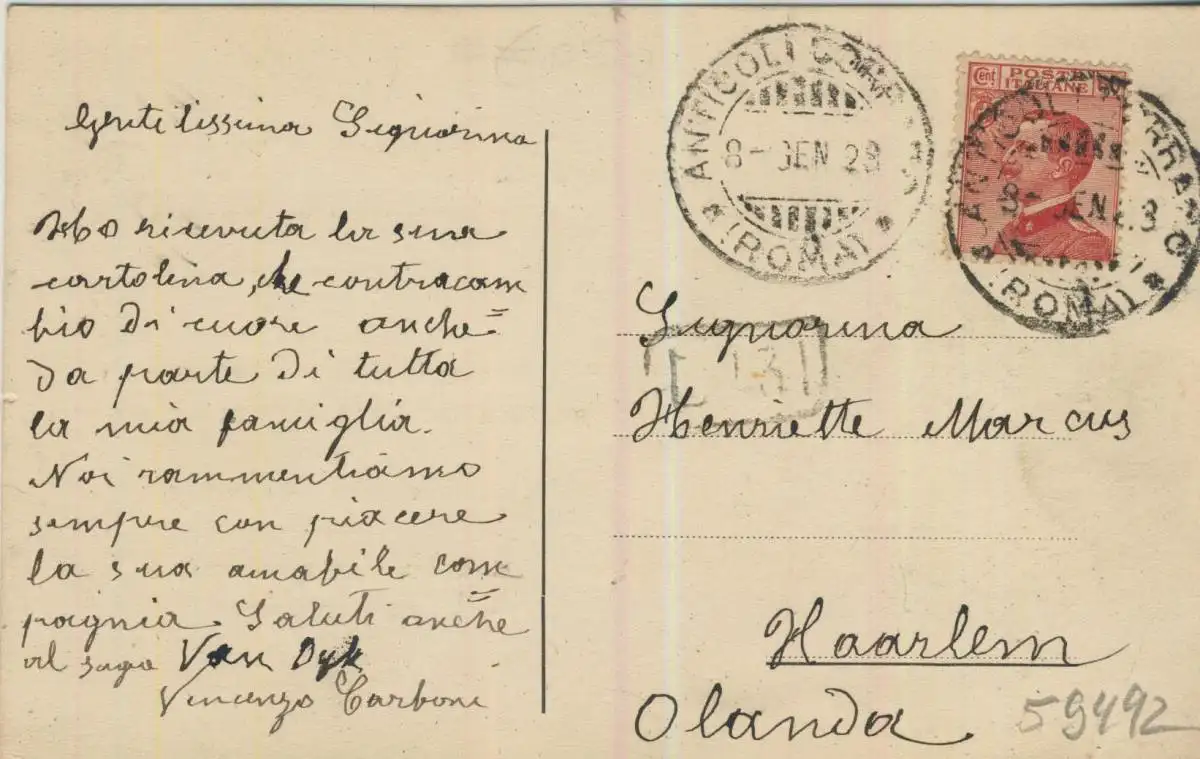 Gentilissima Signorina
Ho ricevuta la sua
cartolina, che contracam
bio di cuore anche
da parte di tutta
la mia famiglia.
Noi rammentiamo
sempre con piacere
la sua amabile com=
pagnia. Saluti anche
al Van Dyk
Vincenzo Carboni
ANTICOLI
8 - GEN 28
(ROMA)
Cent POSTE
ITALIANE
8 - GEN 28
(ROMA)
Signorina
Henriette Marcus
Haarlem
Olanda
59492